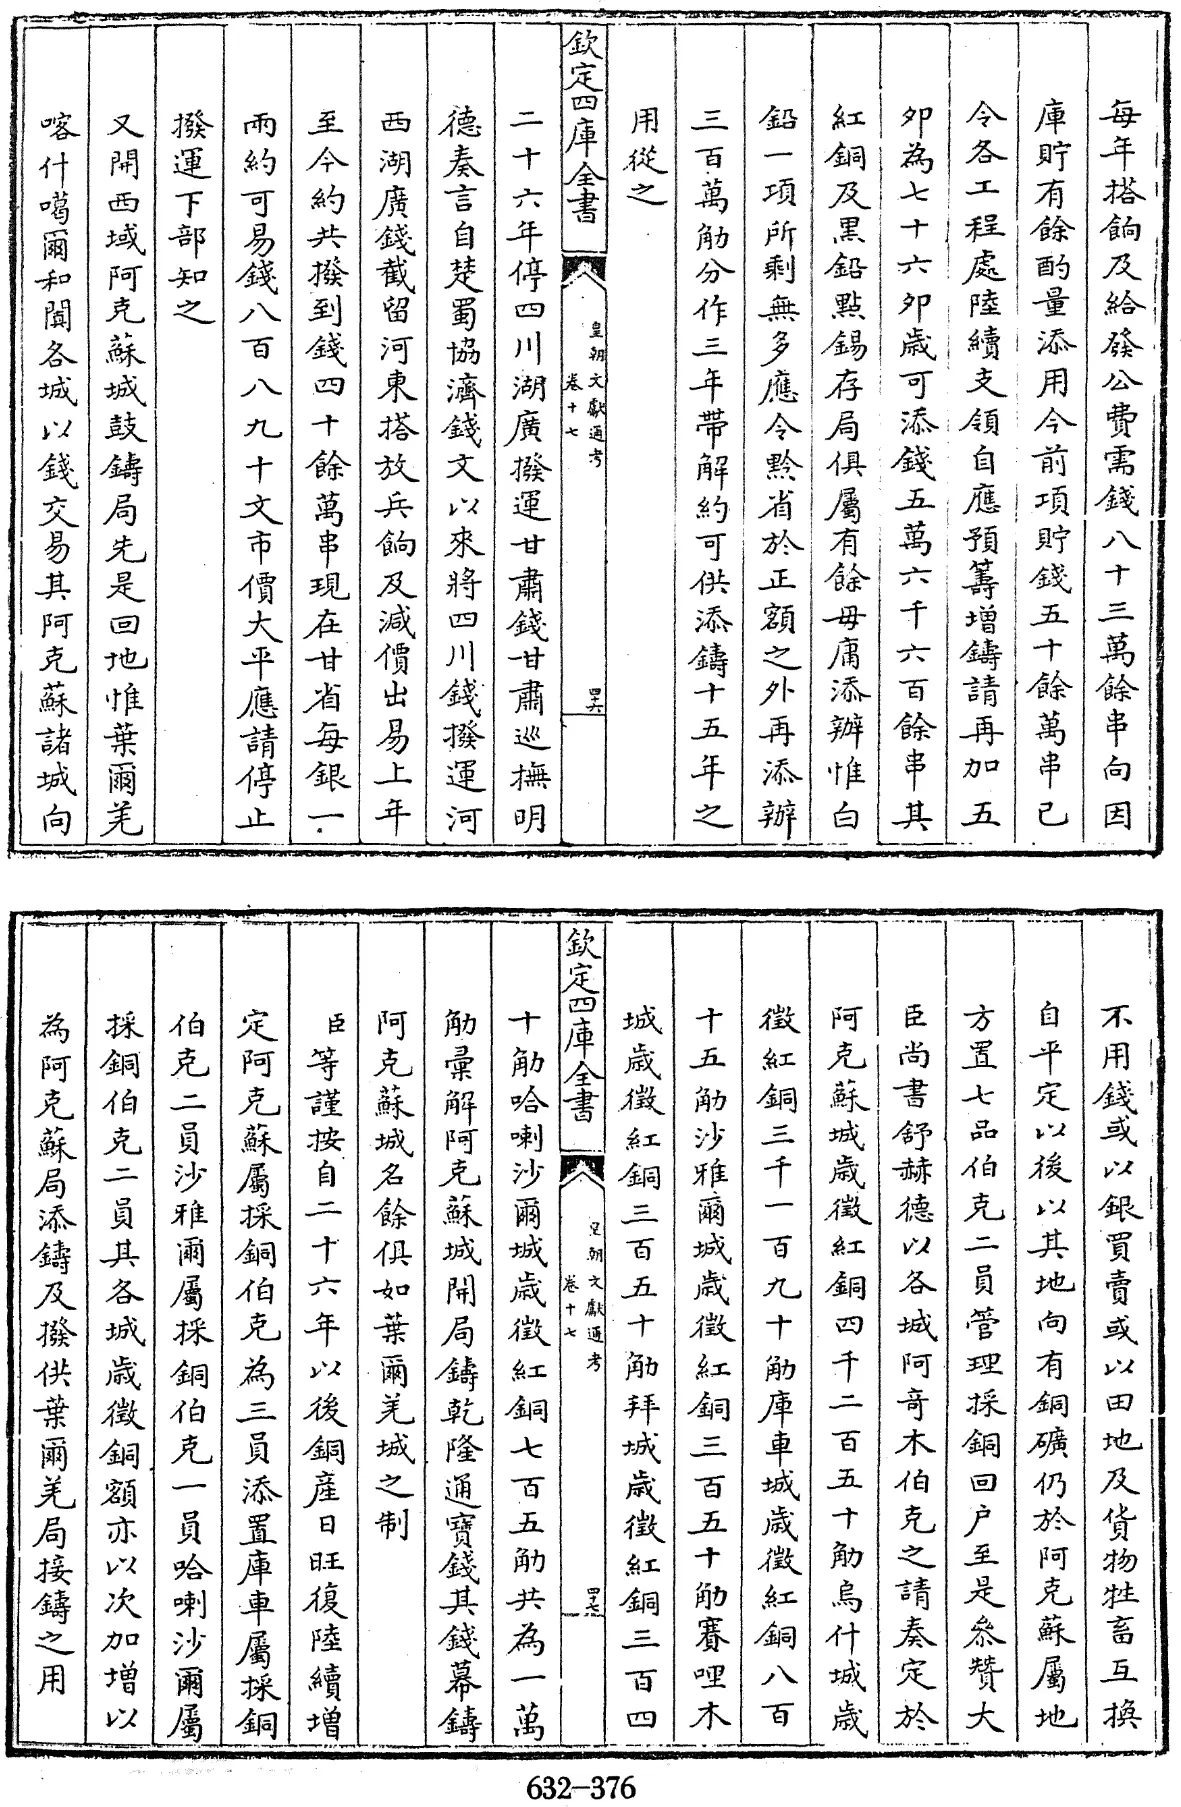 每年搭餉及給發公費需錢八十三萬餘串向因
庫貯有餘酌量添用今前項貯錢五十餘萬串已
令各工程處陸續支領自應預籌增鑄請再加五
卯為七十六卯歳可添錢五萬六千六百餘串其
紅銅及黒鉛㸃錫存局俱屬有餘毋庸添辦惟白
鉛一項所剩無多應令黔省於正額之外再添辦
三百萬觔分作三年帶解約可供添鑄十五年之
用從之
欽定四庫全書
皇朝文獻通考
卷十七
四六
二十六年停四川湖廣撥運甘肅錢甘肅巡撫明
德奏言自楚蜀協濟錢文以來將四川錢撥運河
西湖廣錢截留河東搭放兵餉及減價出易上年
至今約共撥到錢四十餘萬串現在甘省每銀一
兩約可易錢八百八九十文市價大平應請停止
撥運下部知之
又開西域阿克蘇城鼓鑄局先是回地惟葉爾羌
喀什噶爾和闐各城以錢交易其阿克蘇諸城向
不用錢或以銀買賣或以田地及貨物牲畜互換
自平定以後以其地向有銅礦仍於阿克蘇屬地
方置七品伯克二員管理採銅回户至是叅贊大
臣尚書舒赫德以各城阿竒木伯克之請奏定於
阿克蘇城歳徴紅銅四千二百五十觔烏什城歳
徴紅銅三千一百九十觔庫車城歳徴紅銅八百
十五觔沙雅爾城歳徴紅銅三百五十觔賽哩木
城歳徴紅銅三百五十觔拜城歳徴紅銅三百四
欽定四庫全書
皇朝文獻通考
卷十七
四七
十觔哈喇沙爾城歳徴紅銅七百五觔共為一萬
觔彙解阿克蘇城開局鑄乾隆通寶錢其錢幕鑄
阿克蘇城名餘俱如葉爾羌城之制
臣等謹按自二十六年以後銅産日旺復陸續增
定阿克蘇屬採銅伯克為三員添置庫車屬採銅
伯克二員沙雅爾屬採銅伯克一員哈喇沙爾屬
採銅伯克二員其各城歳徴銅額亦以次加増以
為阿克蘇局添鑄及撥供葉爾羌局接鑄之用
632-376